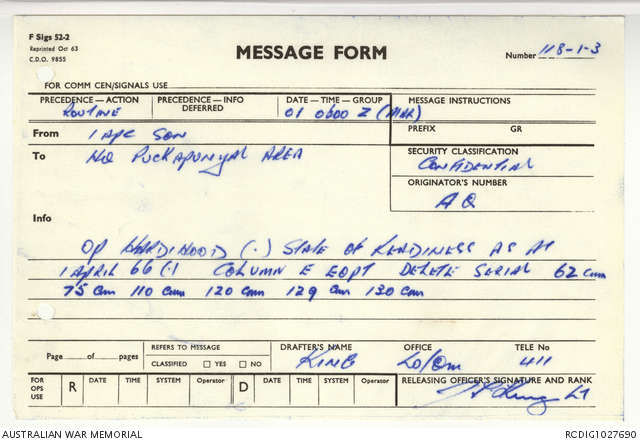 F Sigs 52-2
Reprinted Oct 63
C.D.O. 9855
MESSAGE FORM
Number 118-1-3
FOR COMM CEN/SIGNALS USE
PRECEDENCE—ACTION
ROUTINE
PRECEDENCE—INFO
DEFERRED
DATE—TIME—GROUP
01 0600 Z (MAR)
MESSAGE INSTRUCTIONS
PREFIX GR
From 1 APC SQN
To HQ PUCKAPUNYAL AREA
SECURITY CLASSIFICATION
CONFIDENTIAL
ORIGINATOR'S NUMBER
A Q
Info
OP HARDIHOOD (.) STATE OF READINESS AS AT
1 APRIL 66 (.) COLUMN E EQPT DELETE SERIAL 62 cmm
75 cmm 110 cmm 120 cmm 129 cmm 130 cmm
Page of pages
REFERS TO MESSAGE
CLASSIFIED YES NO
DRAFTER'S NAME
KING
OFFICE
LO/QM
TELE No
411
FOR OPS USE
R DATE TIME SYSTEM Operator D DATE TIME SYSTEM Operator
RELEASING OFFICER'S SIGNATURE AND RANK
Lt
AUSTRALIAN WAR MEMORIAL
RCDIG1027690